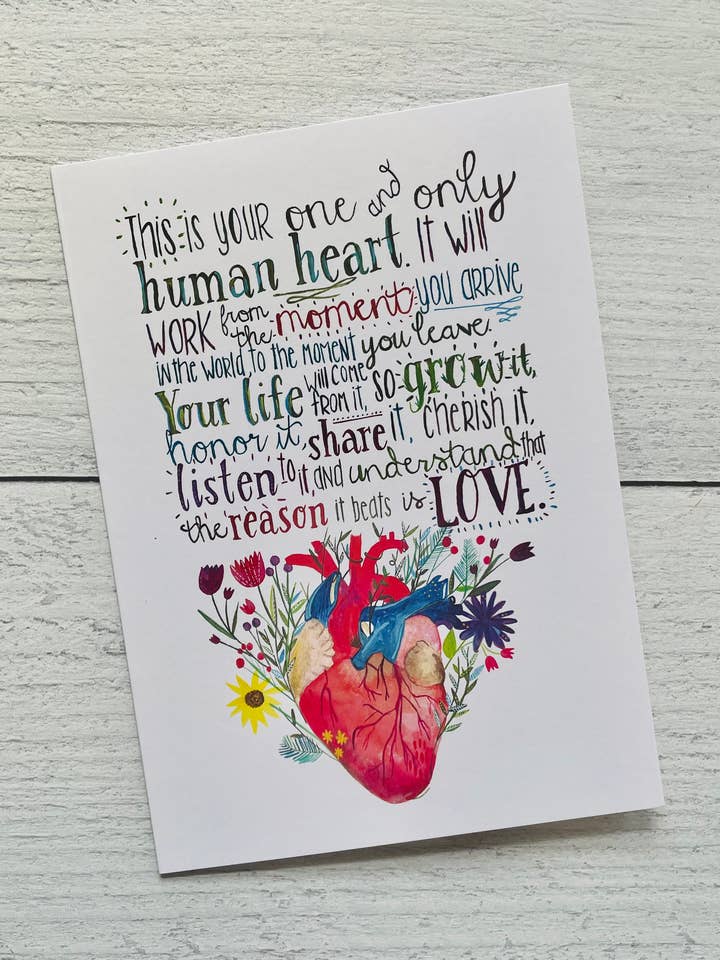 THIS is YOUR one and only
human heart. IT will
WORK from the moment you ARRIVE
IN THE WORLD TO THE MOMENT you leave.
Your life will COME FROM IT, SO grow it,
honor it, share it, CHERISH IT,
listen to it, AND understand that
the reason it beats is LOVE.